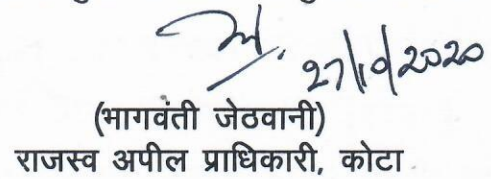 27/10/2020
(भागवंती जेठवानी)
राजस्व अपील प्राधिकारी, कोटा